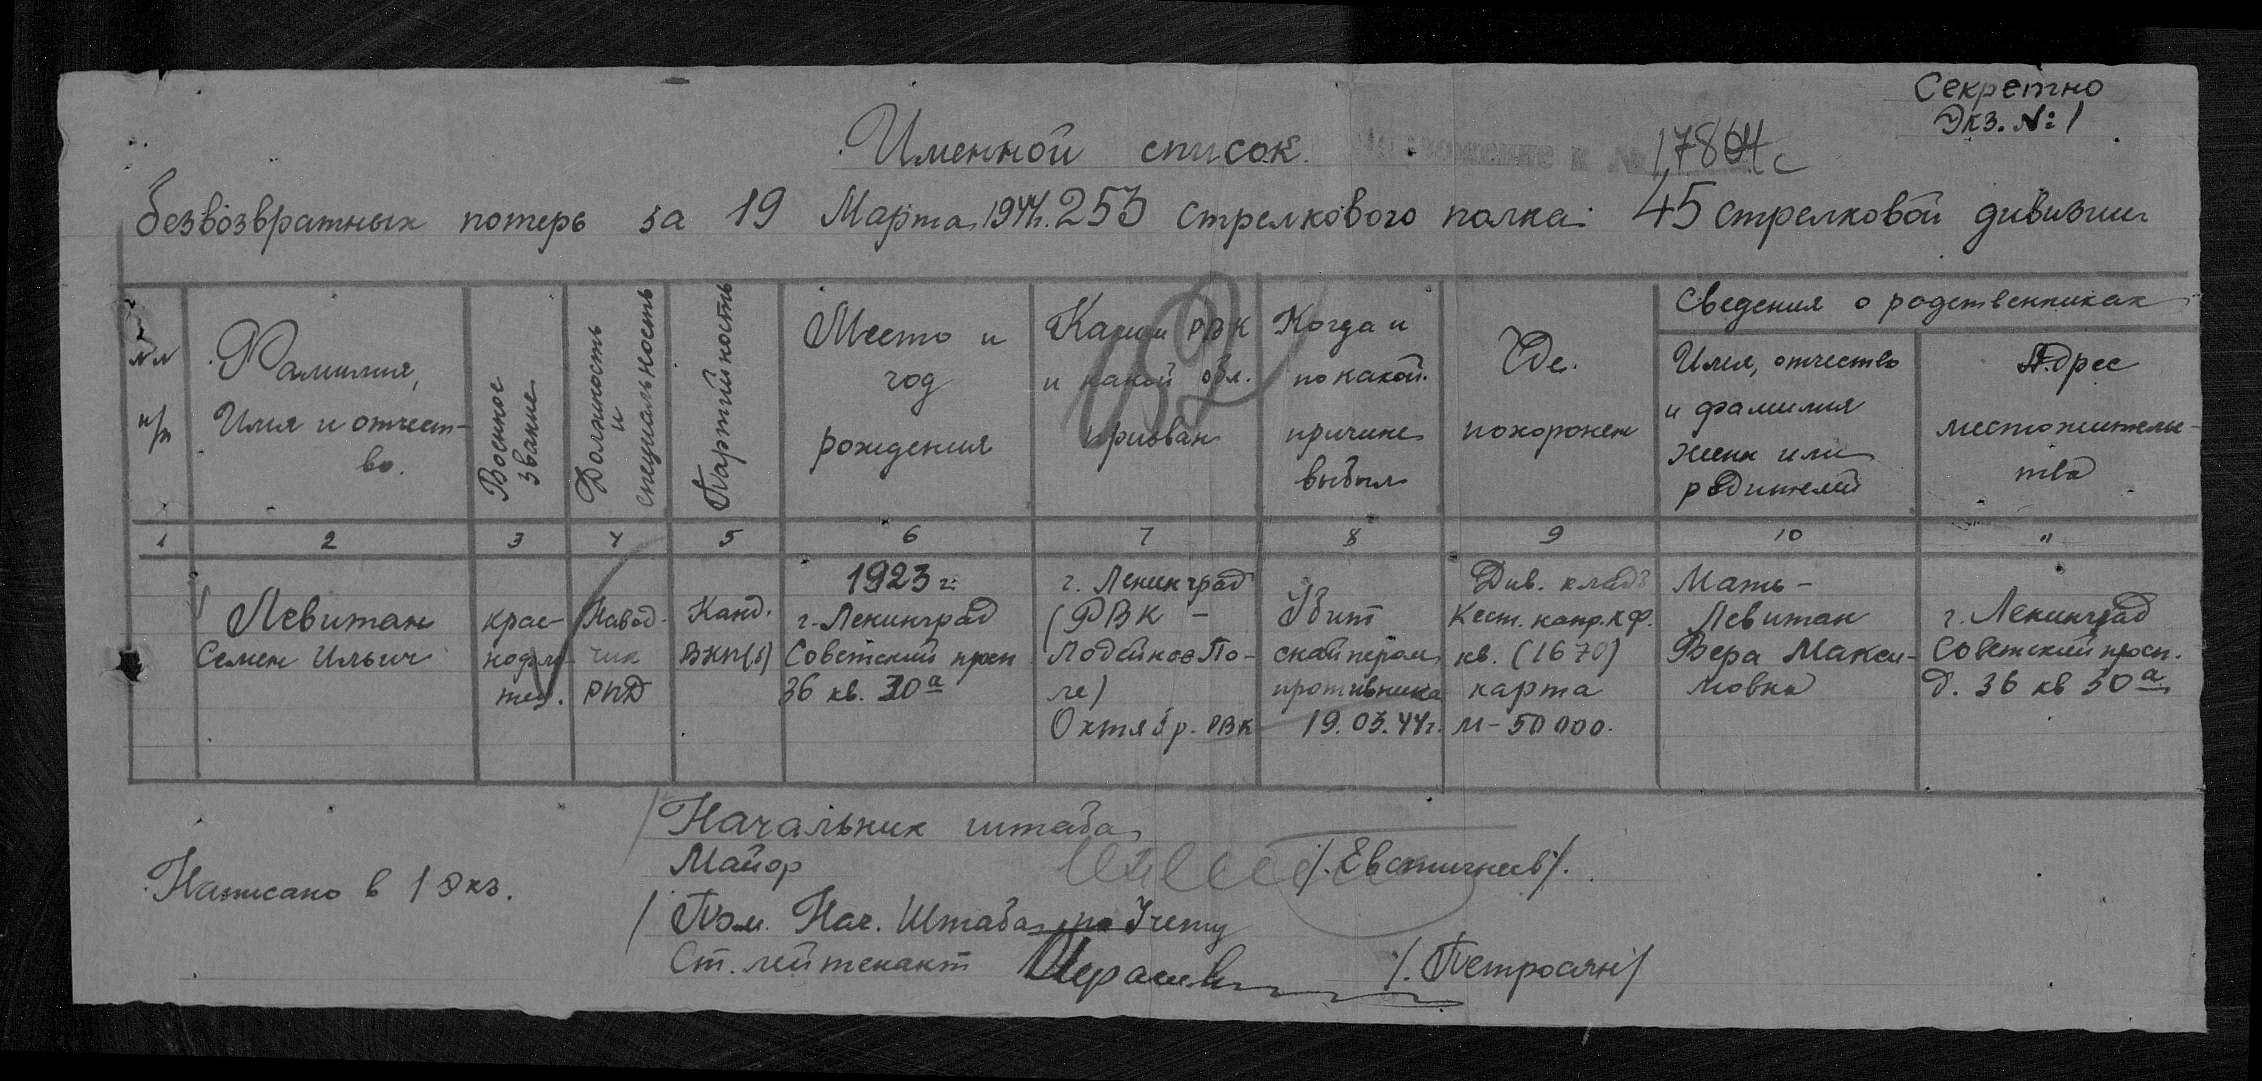 Секретно
Экз. № 1
Именной список
безвозвратных потерь за 19 Марта 1944г. 253 стрелкового полка 45 стрелковой дивизии
№№ п/п
Фамилия,
Имя и отчест-
во.
Военное
звание
Должность
и
специальность
Партийность
Место и
год
рождения
Каким РВК
и какой обл.
призван
Когда и
по какой
причине
выбыл
Где
похоронен
Сведения о родственниках
Имя, отчество
и фамилия
жены или
родителей
Адрес
местожитель-
тва
1 2 3 4 5 6 7 8 9 10 11
Левитан
Семен Ильич
крас-
ноарм-
еец.
Навод-
чик
РПД
Канд.
ВКП(б)
1923 г.
г. Ленинград
Советский просп
36 кв. 30а
г. Ленинград
(РВК -
Лодейное По-
ле)
Октябр. РВК
Убит
снайпером
противника
19.03.44г.
Див. клад.
Кест. напр. К.Ф.
кв. (1670)
карта
М-50 000.
Мать -
Левитан
Вера Макси-
мовна
г. Ленинград
Советский просп.
д. 36 кв 50а
Начальник штаба
Майор /. Евстигнеев/.
Написано в 1 экз.
Пом. Нач. Штаба по Учету
Ст. лейтенант /. Петросян/